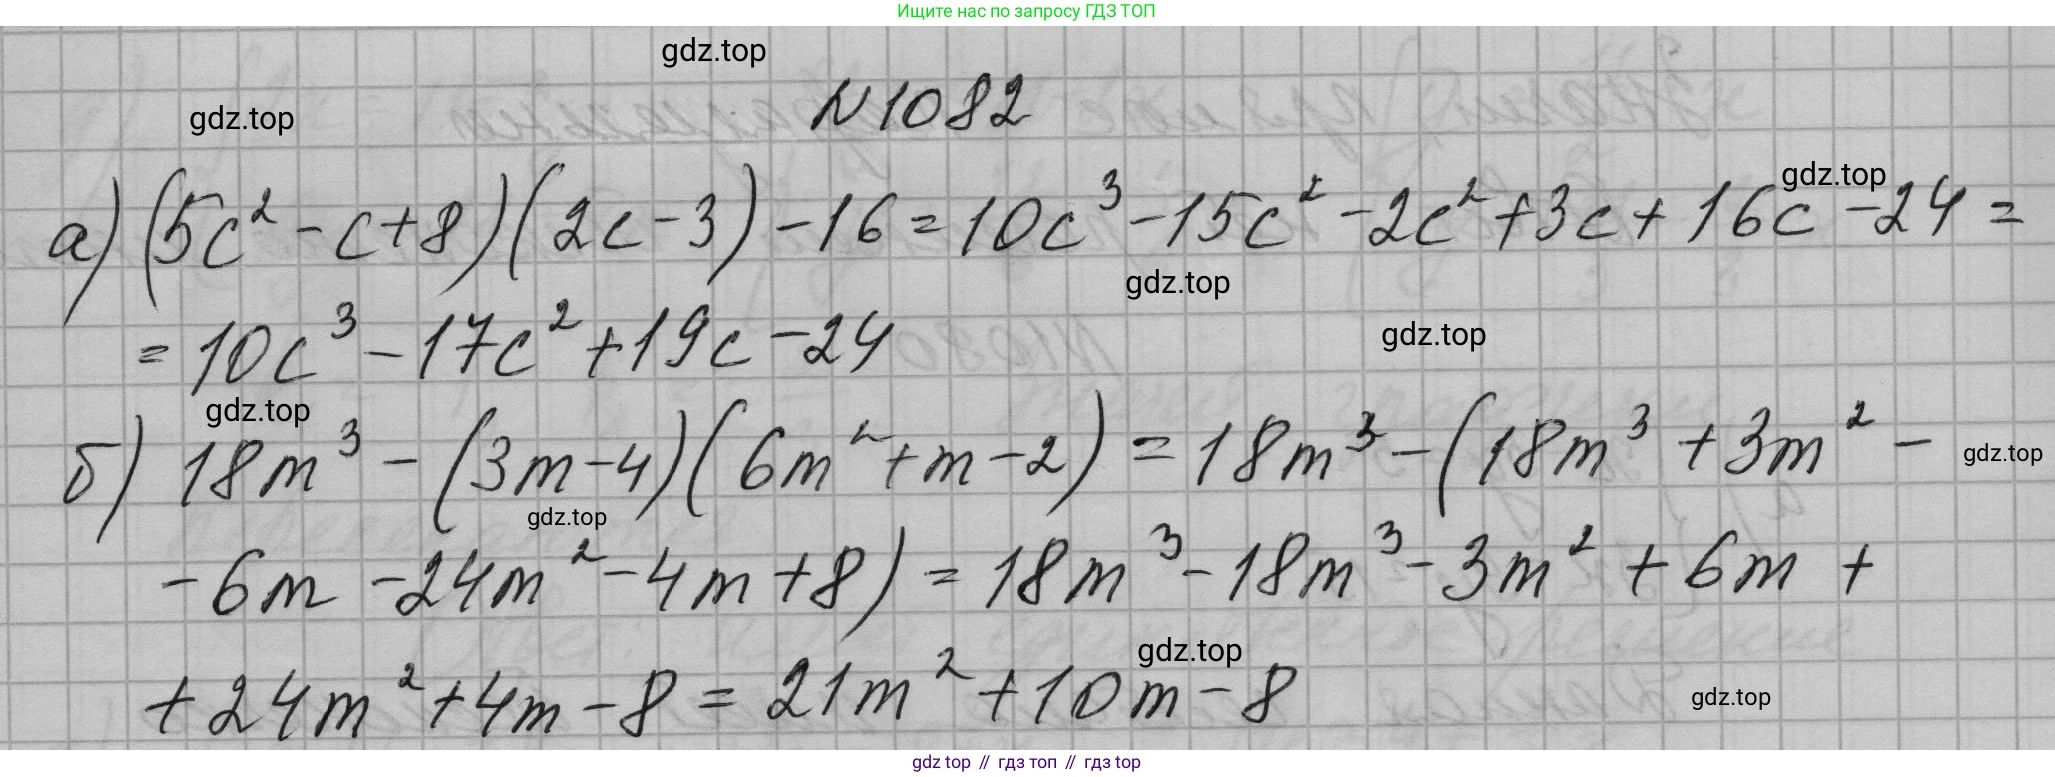 Ищите нас по запросу ГДЗ ТОП
gdz.top
N1082
gdz.top
gdz.top
а) (5c² - c + 8)(2c - 3) - 16 = 10c³ - 15c² - 2c² + 3c + 16c - 24 =
gdz.top
= 10c³ - 17c² + 19c - 24
gdz.top
gdz.top
б) 18m³ - (3m - 4)(6m² + m - 2) = 18m³ - (18m³ + 3m² -
gdz.top
gdz.top
- 6m - 24m² - 4m + 8) = 18m³ - 18m³ - 3m² + 6m +
gdz.top
+ 24m² + 4m - 8 = 21m² + 10m - 8
gdz.top
gdz top // гдз топ // гдз top